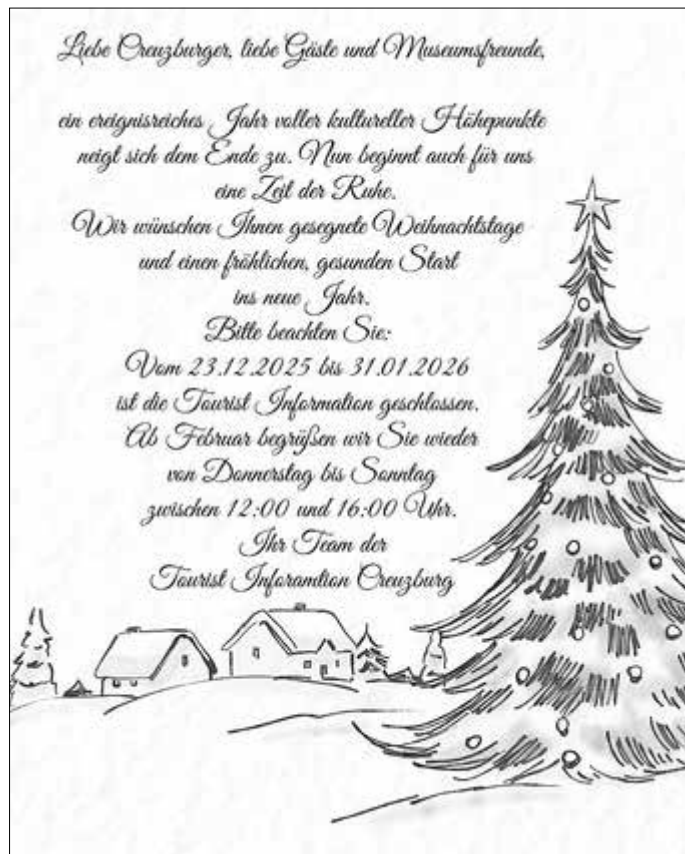 Liebe Creuzburger, liebe Gäste und Museumsfreunde,
ein ereignisreiches Jahr voller kultureller Höhepunkte
neigt sich dem Ende zu. Nun beginnt auch für uns
eine Zeit der Ruhe.
Wir wünschen Ihnen gesegnete Weihnachtstage
und einen fröhlichen, gesunden Start
ins neue Jahr.
Bitte beachten Sie:
Vom 23.12.2025 bis 31.01.2026
ist die Tourist Information geschlossen.
Ab Februar begrüßen wir Sie wieder
von Donnerstag bis Sonntag
zwischen 12:00 und 16:00 Uhr.
Ihr Team der
Tourist Inforamtion Creuzburg